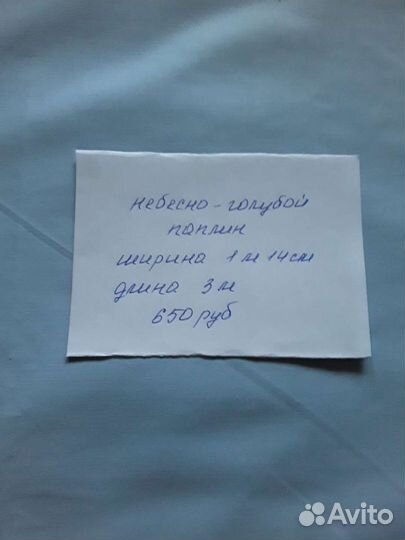 небесно-голубой
паплин
ширина 1м 14см
длина 3м
650руб
Avito